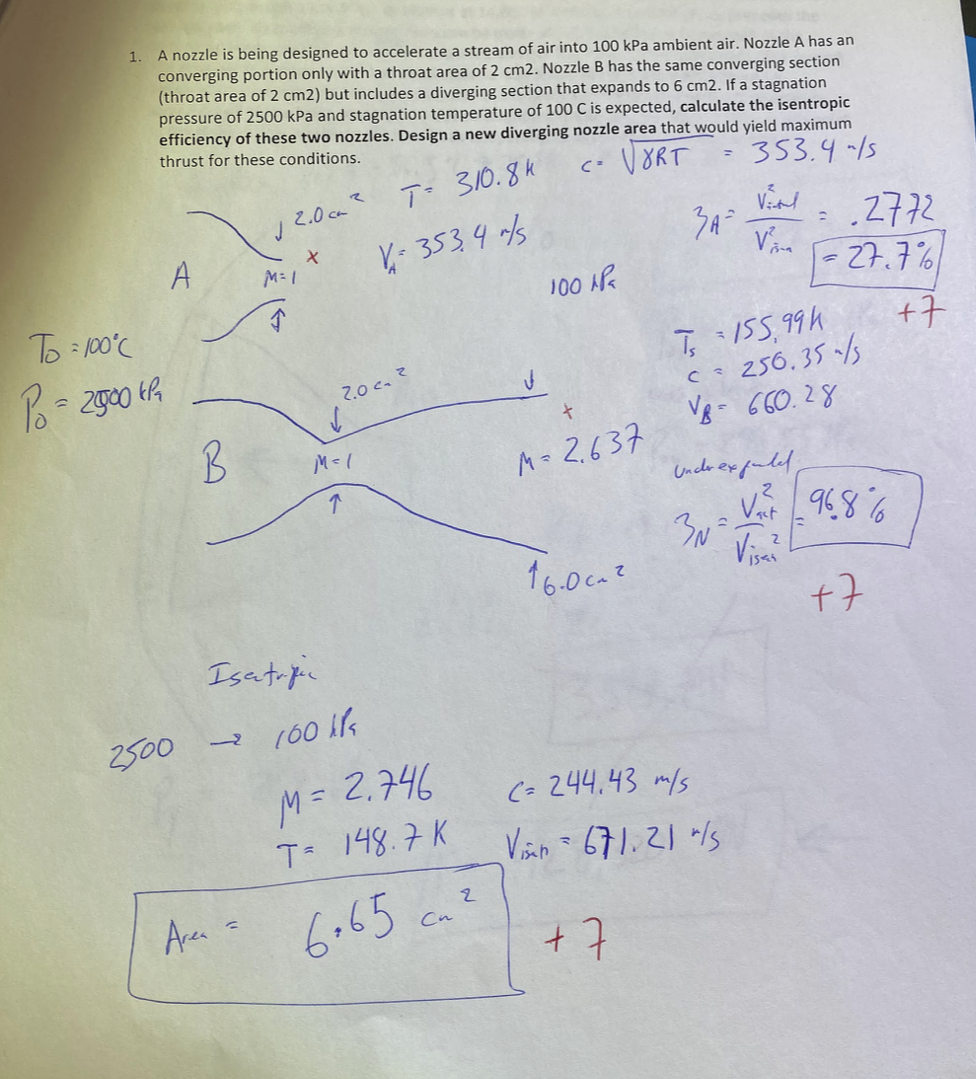 1. A nozzle is being designed to accelerate a stream of air into 100 kPa ambient air. Nozzle A has an
converging portion only with a throat area of 2 cm2. Nozzle B has the same converging section
(throat area of 2 cm2) but includes a diverging section that expands to 6 cm2. If a stagnation
pressure of 2500 kPa and stagnation temperature of 100 C is expected, calculate the isentropic
efficiency of these two nozzles. Design a new diverging nozzle area that would yield maximum
thrust for these conditions.
T= 310.8K c= √γRT = 353.4 m/s
↓ 2.0 cm²
A
M=1
x
V_A= 353.4 m/s
100 kPa
= .2772
= 27.7%
+7
T₀ = 100°C
P₀ = 2500 kPa
B
2.0 cm²
M=1
x
M= 2.637
↑ 6.0 cm²
T_s = 155.99K
c = 250.35 m/s
V_B= 660.28
Underexpanded
= V²act / V isen² = 96.8%
+7
2500 → 100 kPa
M= 2.746 C= 244.43 m/s
T= 148.7 K Visen = 671.21 m/s
Area = 6.65 cm²
+7